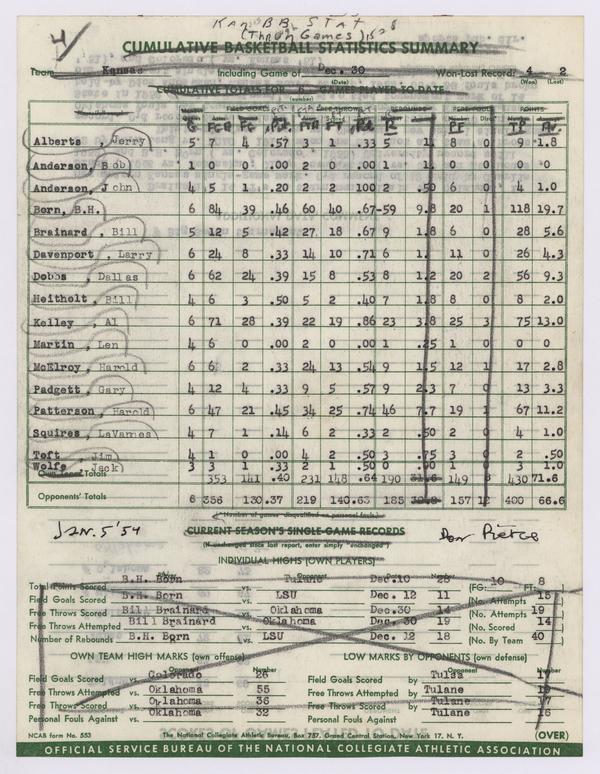 4/ KAN BB STAT
(Thrun Games) 15
CUMULATIVE BASKETBALL STATISTICS SUMMARY
Team Kansas Including Game of Dec. 30 Won-Lost Record: 4 2
(Date) (Won) (Lost)
CUMULATIVE TOTALS FOR 6 GAMES PLAYED TO DATE
(number)
FIELD GOALS FREE THROWS REBOUNDS PERS. FOULS POINTS
G FGA FG .Pct. FTA FT .Pct R PF TP Av.
Alberts , Jerry 5 7 4 .57 3 1 .33 5 1 8 0 9 1.8
Anderson, Bob 1 0 0 .00 2 0 .00 1 1. 0 0 0 0
Anderson, John 4 5 1 .20 2 2 100 2 .50 6 0 4 1.0
Born, B.H. 6 84 39 .46 60 40 .67 59 9.8 20 1 118 19.7
Brainard , Bill 5 12 5 .42 27 18 .67 9 1.8 6 0 28 5.6
Davenport , Larry 6 24 8 .33 14 10 .71 6 1. 11 0 26 4.3
Dobbs , Dallas 6 62 24 .39 15 8 .53 8 1.2 20 2 56 9.3
Heitholt , Bill 4 6 3 .50 5 2 .40 7 1.8 8 0 8 2.0
Kelley , Al 6 71 28 .39 22 19 .86 23 3.8 25 3 75 13.0
Martin , Len 4 6 0 .00 2 0 .00 1 .25 1 0 0 0
McElroy, Harold 6 6 2 .33 24 13 .54 9 1.5 12 1 17 2.8
Padgett , Gary 4 12 4 .33 9 5 .57 9 2.3 7 0 13 3.3
Patterson , Harold 6 47 21 .45 34 25 .74 46 7.7 19 1 67 11.2
Squires , LaVannes 4 7 1 .14 6 2 .33 2 .50 2 0 4 1.0
Toft , Jim 4 1 0 .00 4 2 .50 3 .75 3 0 2 .50
Wolfe , Jack 3 3 1 .33 2 1 .50 0 .00 1 0 3 1.0
Own Team Totals 353 141 .40 231 148 .64 190 31.6 149 8 430 71.6
Opponents' Totals 6 356 130 .37 219 140 .63 185 30.8 157 12 400 66.6
(*Number of games disqualified on personal fouls.)
Jan. 5 '54 CURRENT SEASON'S SINGLE-GAME RECORDS Don Pierce
(If unchanged since last report, enter simply "unchanged")
INDIVIDUAL HIGHS (OWN PLAYERS)
Player Opponent Date Number
Total Points Scored B.H. Born vs. Tulane Dec.10 28 (FG: 10 FT: 8
Field Goals Scored B.H. Born vs. LSU Dec. 12 11 (No. Attempts 15
Free Throws Scored Bill Brainard vs. Oklahoma Dec.30 14 (No. Attempts 19
Free Throws Attempted Bill Brainard vs. Oklahoma Dec. 30 19 (No. Scored 14
Number of Rebounds B.H. Born vs. LSU Dec. 12 18 (No. By Team 40
OWN TEAM HIGH MARKS (own offense) LOW MARKS BY OPPONENTS (own defense)
Opponent Number Opponent Number
Field Goals Scored vs. Colorado 26 Field Goals Scored by Tulsa 17
Free Throws Attempted vs. Oklahoma 55 Free Throws Attempted by Tulane
Free Throws Scored vs. Oklahoma 36 Free Throws Scored by Tulane 7
Personal Fouls Against vs. Oklahoma 32 Personal Fouls Against by Tulane 16
NCAB form No. 553 The National Collegiate Athletic Bureau, Box 757, Grand Central Station, New York 17, N. Y. (OVER)
OFFICIAL SERVICE BUREAU OF THE NATIONAL COLLEGIATE ATHLETIC ASSOCIATION